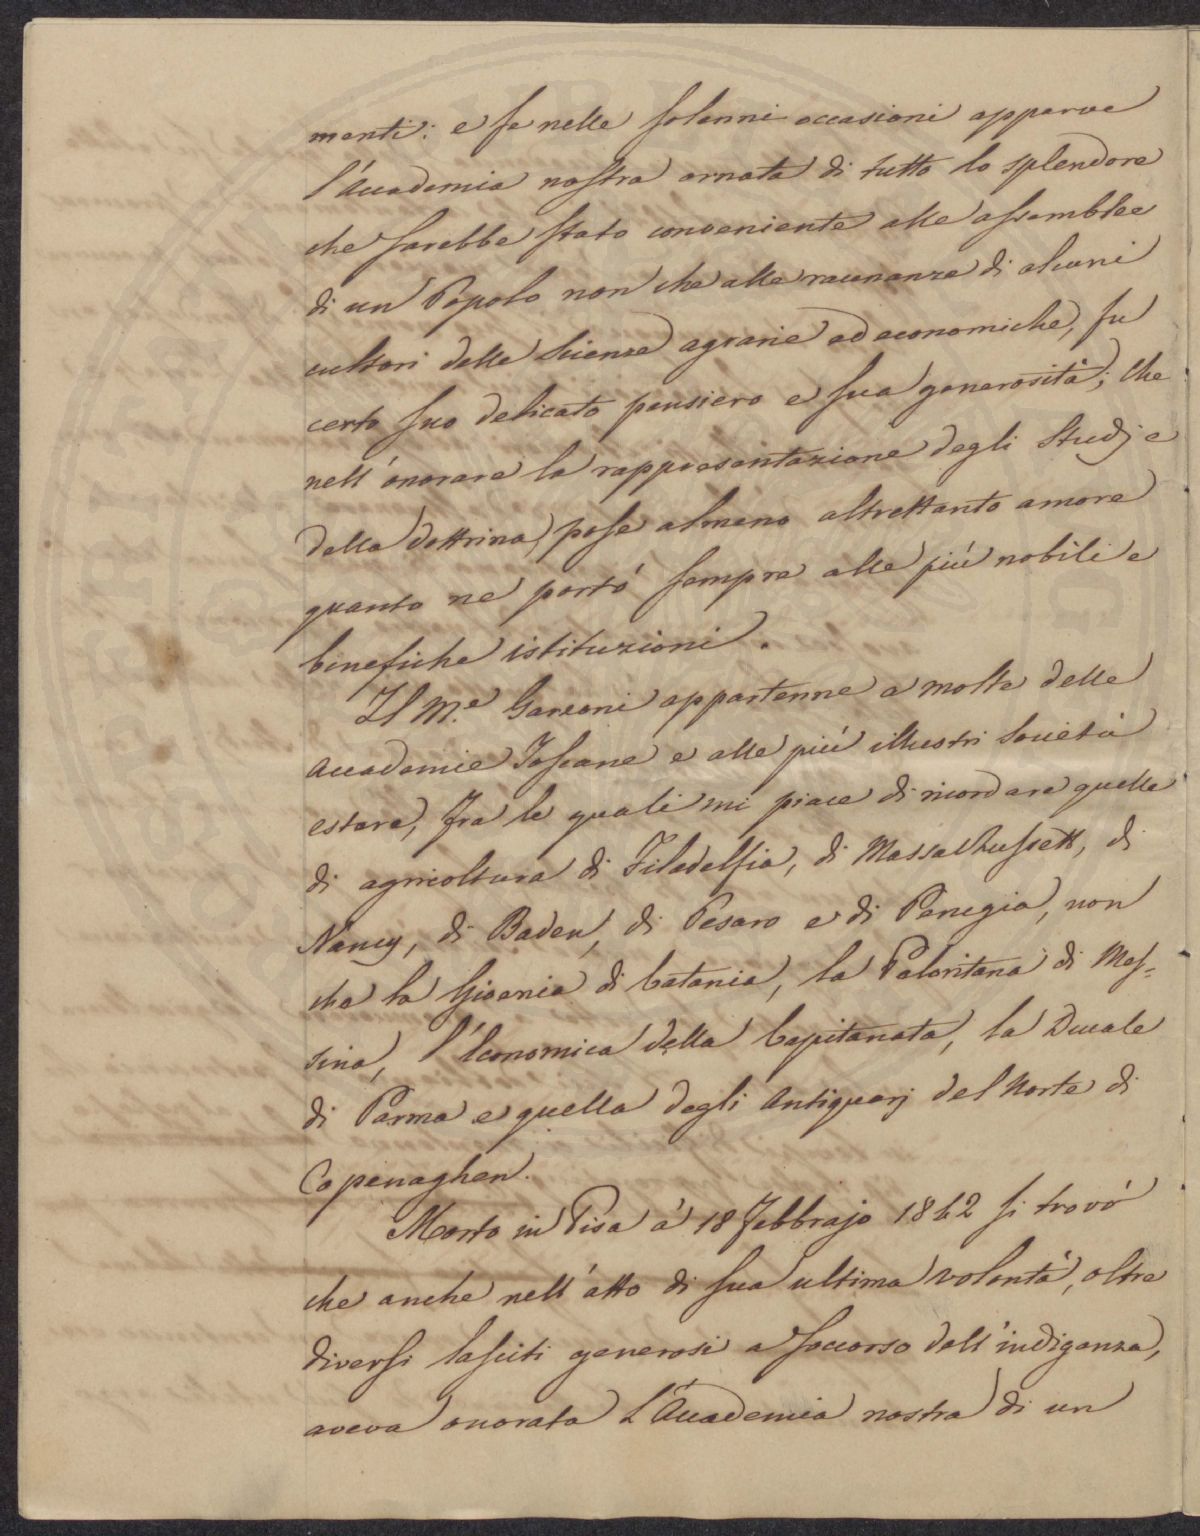 menti: e se nelle solenni occasioni apparve
l'Accademia nostra ornata di tutto lo splendore
che sarebbe stato conveniente alle assemblee
di un Popolo non che alle raunanze di alcuni
cultori delle Scienze agrarie ed economiche, fu
certo suo delicato pensiero e sua generosità; che
nell'onorare la rappresentazione degli Studj e
della dottrina, pose almeno altrettanto amore
quanto ne portò sempre alle più nobili e
benefiche istituzioni.
Il M.e Garzoni appartenne a molte delle
Accademie Toscane e alle più illustri Società
estere, fra le quali mi piace di ricordare quelle
di agricoltura di Filadelfia, di Massachussett, di
Nancy, di Baden, di Pesaro e di Perugia, non
che la Gioenia di Catania, la Peloritana di Mes=
sina, l'Economica della Capitanata, la Ducale
di Parma e quella degli Antiquarj del Norte di
Copenaghen.
Morto in Pisa à 18 Febbrajo 1842 si trovò
che anche nell'atto di sua ultima volontà, oltre
diversi lasciti generosi a soccorso dell'indigenza,
aveva onorata L'Accademia nostra di un